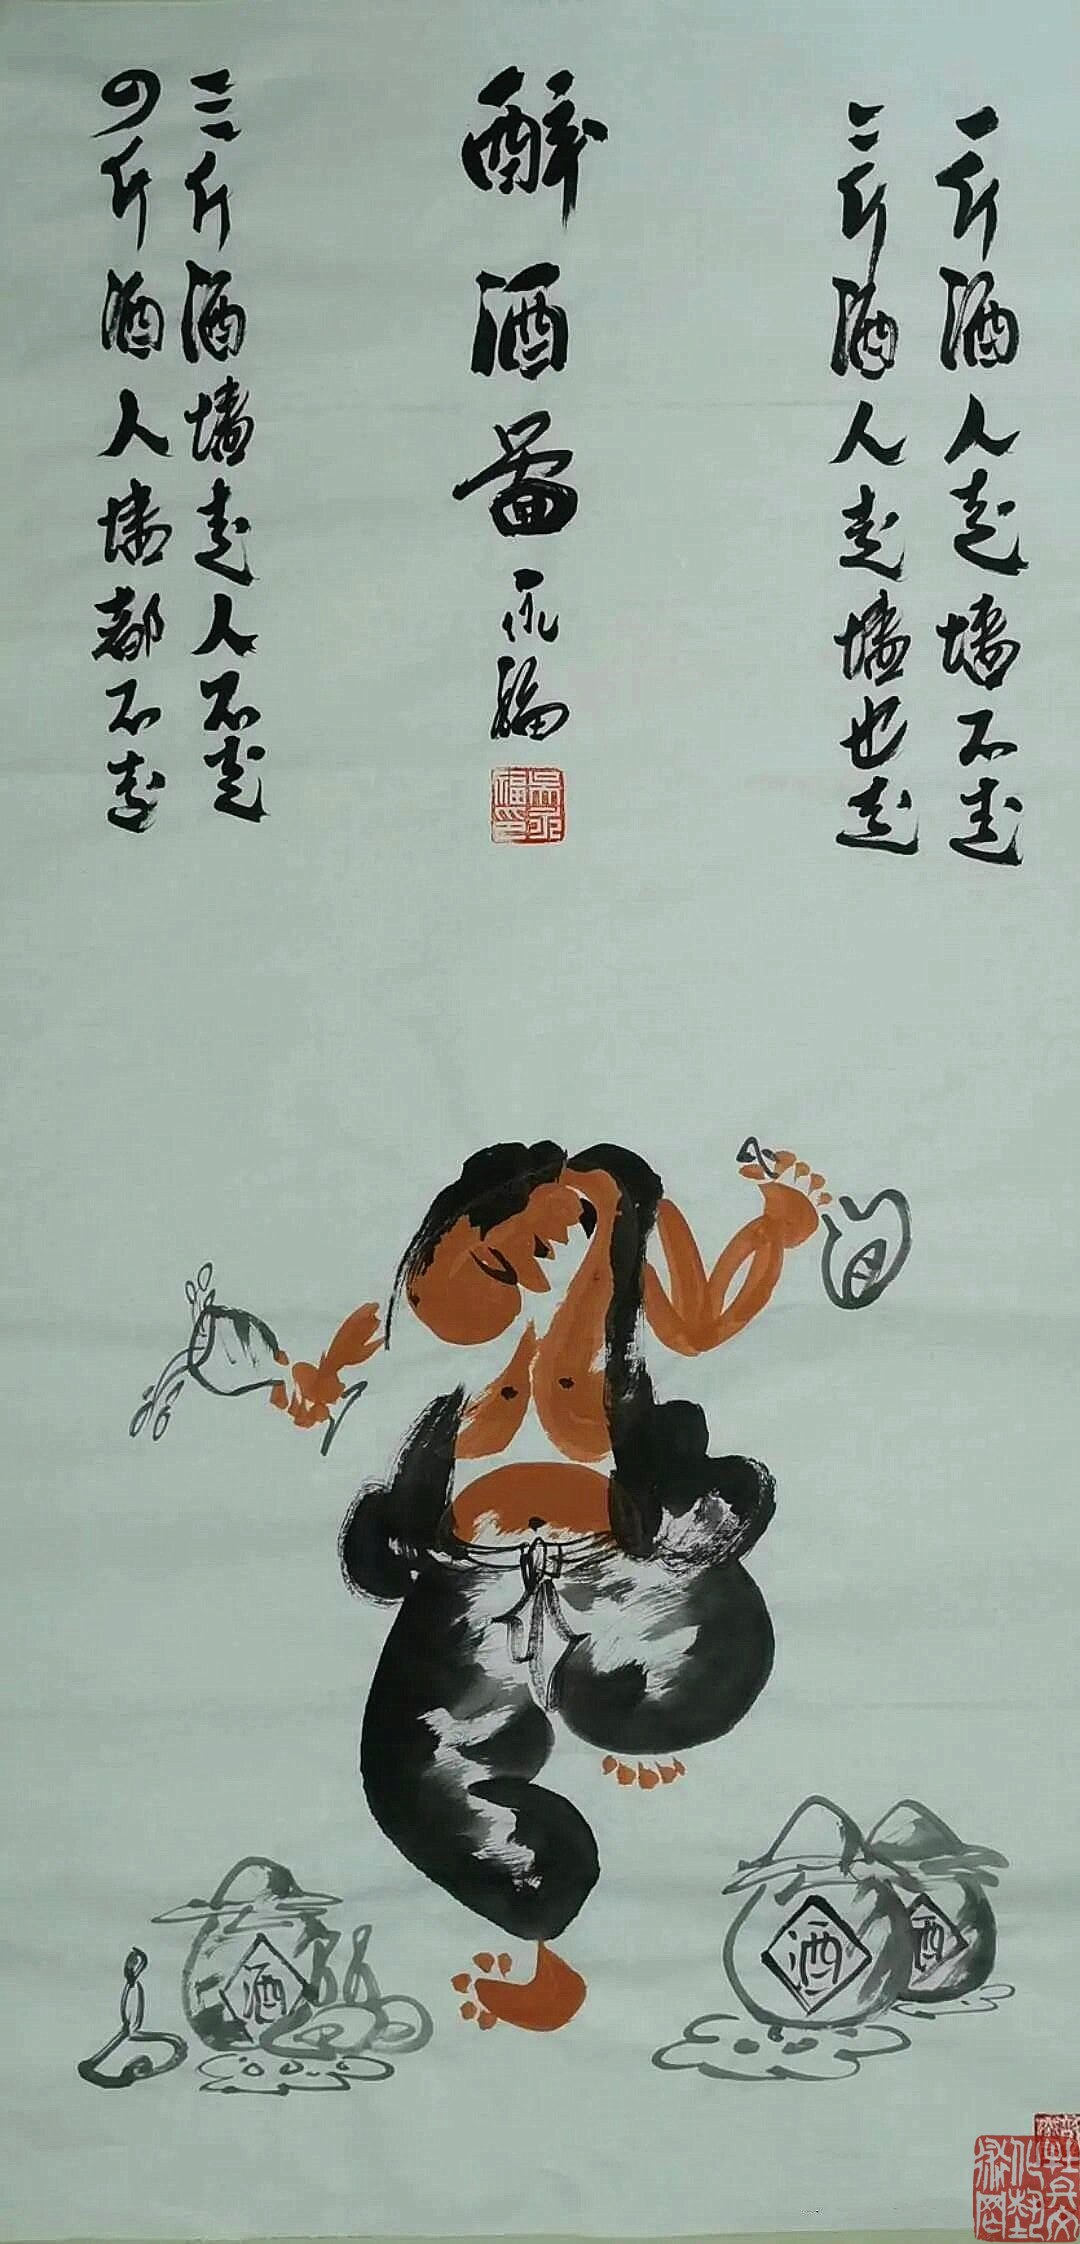 一斤酒人走墙不走
二斤酒人走墙也走
醉酒图
永福
吴永福印
三斤酒墙走人不走
四斤酒人墙都不走
酒
酒
酒
酒